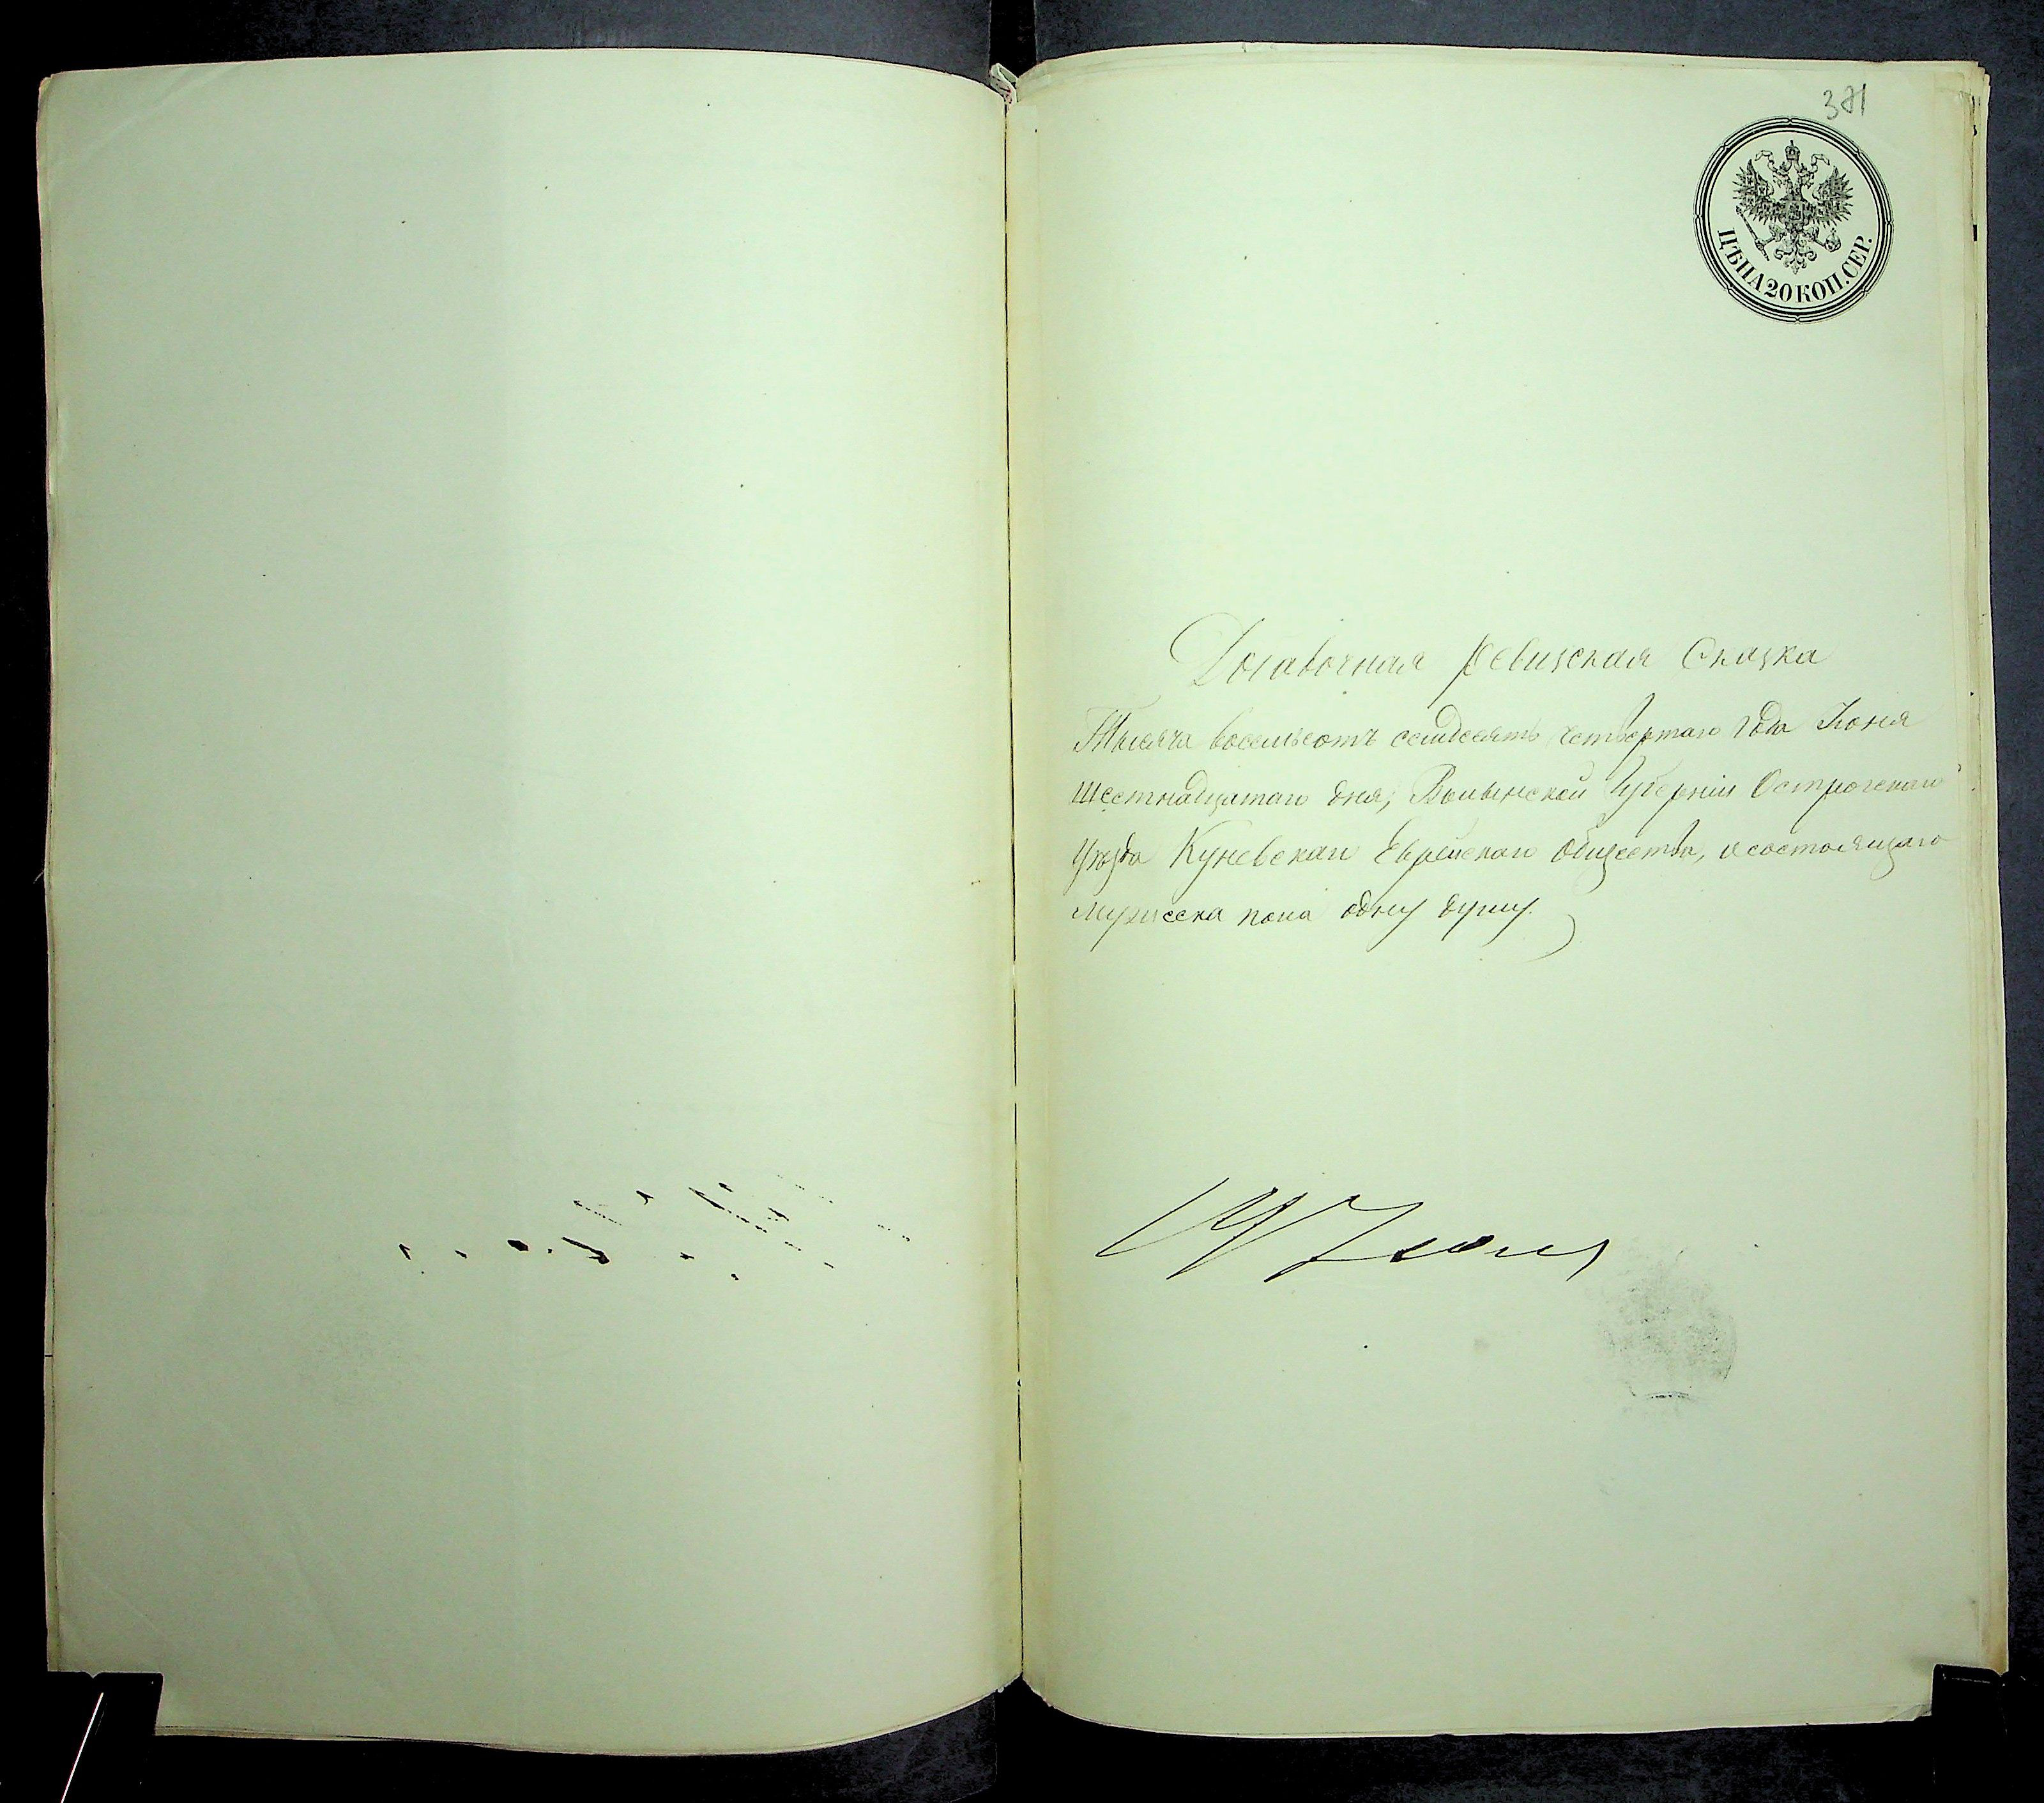 381
ЦѢНА 20 КОП. СЕР.
Добавочная ревизская сказка
Тысяча восемьсотъ семдесятъ четвертаго года Іюня
шестнадцатаго дня, Волынской Губерніи Острогскаго
уѣзда Куневскаго Еврейскаго общества, о состоящаго
мужеска пола одну душу.